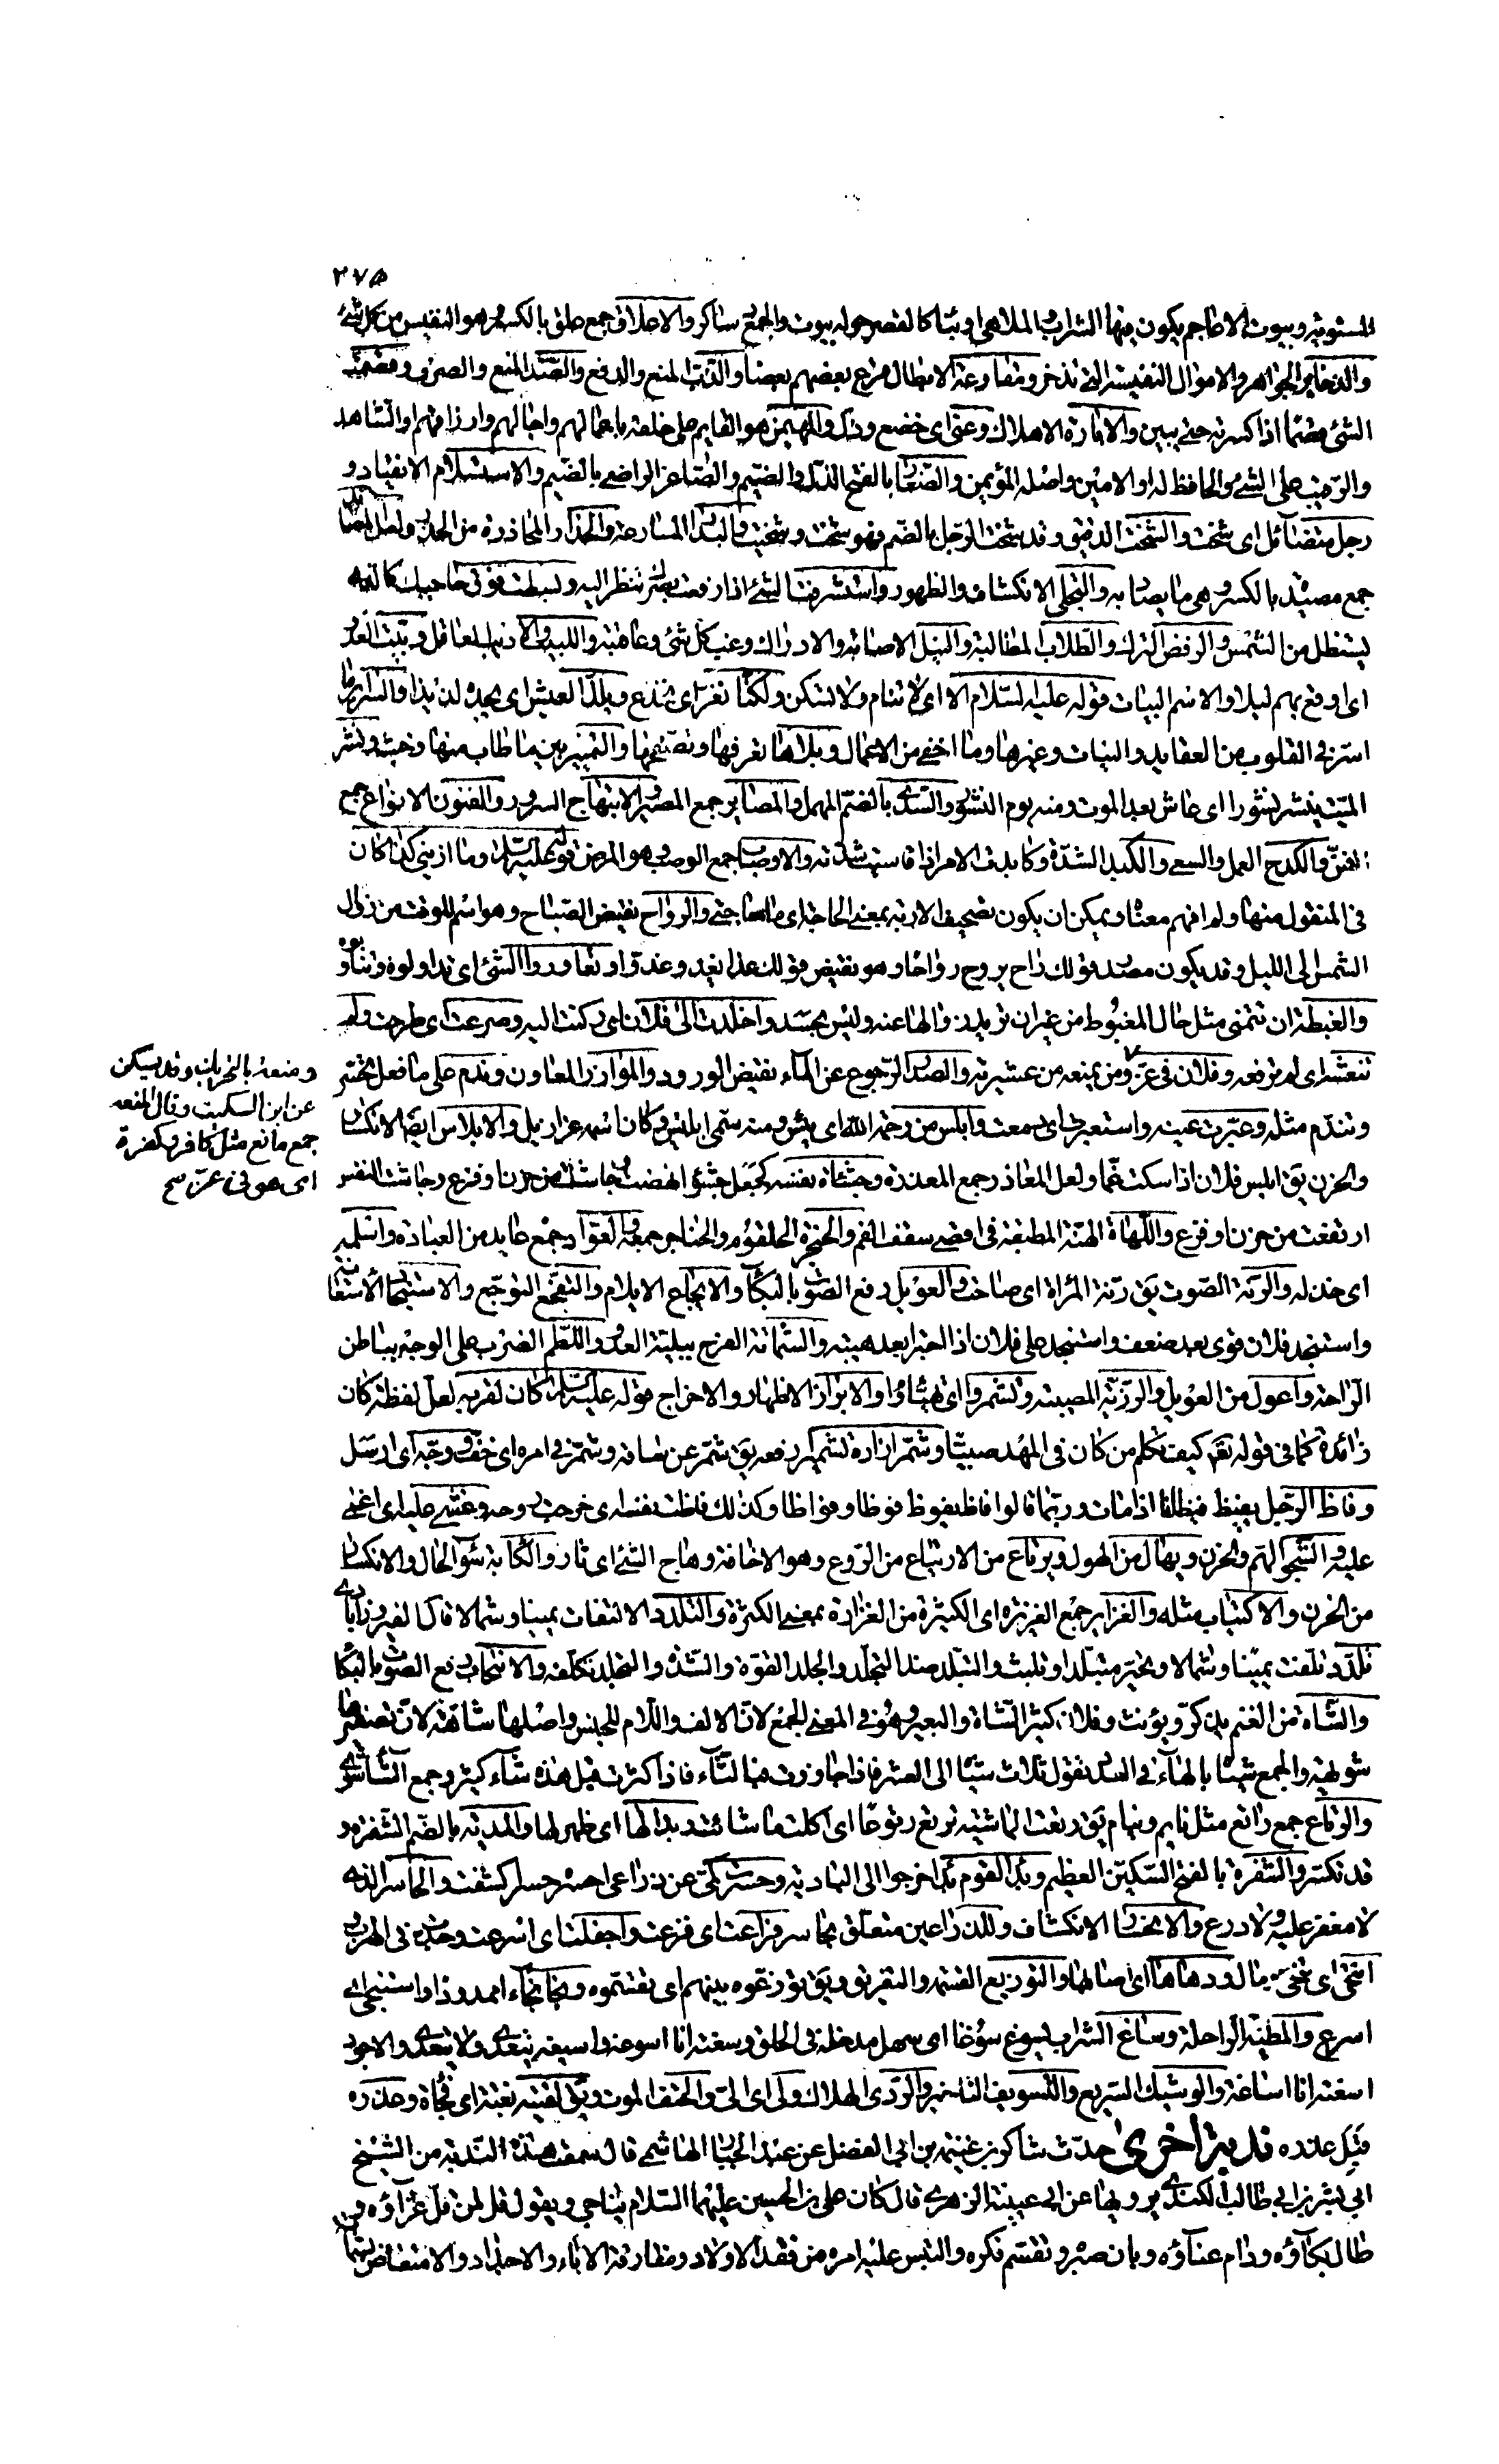 ٢٧٥
المستوية وبيوت الاعاجم يكون فيها الشراب والملاهي او بناء كالقصر حوله بيوت والجمع دساكر والاعلاق جمع علق بالكسر وهو النفيس من كل شئ
والذخاير الجواهر والاموال النفيسة التي تذخر ومقارعة الابطال قرع بعضهم بعضا والذب المنع والدفع والصد المنع والصرف وقصمت
الشئ قصما اذا كسرته حتى يبين والابارة الاهلاك وعنى اى خضع وذل والمهيمن هو القايم على خلقه باعمالهم واجالهم وارزاقهم والشاهد
والرقيب على الشئ والحافظ له او الامين واصله المؤيمن والصغار بالفتح الذل والضيم والصاغر الراضي بالضيم والاستسلام الانقياد و
رجل متضائل اى شخت والشخت الدقيق وقد شخت الرجل بالضم فهو شخت وشخيت والبدار المسارعة والحذار المحاذرة من الحذر ولعل المصايد
جمع مصيد بالكسر وهي ما يصاد به والتجلي الانكشاف والظهور واستشرفت الشئ اذا رفعت بصرك تنظر اليه وبسطت فوق حاجبك كالذي
يستظل من الشمس والرفض الترك والطلاب المطالبة والنيل الاصابة والادراك وغب كل شئ وعاقبته واللبيب العاقل وبيت العدو
اى اوقع بهم ليلا والاسم البيات قوله عليه السلام الا اى لا تنام ولا تسكن ولكنا نغر اى نخدع ويلذ العيش اى يجده لذيذا والسراير ما
اسر في القلوب من العقايد والنيات وغيرها وما اخفى من الاعمال وبلاءها تعرفها وتصفحها والتمييز بين ما طاب منها وخبث ونشر
الميت ينشر نشورا اى عاش بعد الموت ومنه يوم النشور والسدى بالضم المهمل والمصاير جمع المصير والابتهاج السرور والفنون الانواع جمع
الفن والكدح العمل والسعي والكبد الشدة وكابدت الامر اذا قاسيت شدته والاوصاب جمع الوصب وهو المرض قوله عليه السلام وما ازيني كذا كان
في المنقول منها ولم افهم معناه ويمكن ان يكون تصحيف الاربة بمعنى الحاجة اى ما حاجتي والرواح نقيض الصباح وهو اسم للوقت من زوال
الشمس الى الليل وقد يكون مصدر قولك راح يروح رواحا وهو نقيض قولك غدا يغدو غدوا وتعاوروا الشئ اى تداولوه وتناوبوه
والغبطة ان تتمنى مثل حال المغبوط من غير ان تريد زوالها عنه وليس بحسد واخلدت الى فلان اى ركنت اليه وصرعت اى طرحت ولم
تنعشه اى لم ترفعه وفلان في عز ومن يمنعه من عشيرته والصدر الرجوع عن الماء نقيض الورود والموازر المعاون وندم على ما فعل
وتندم مثله وعبرت عينه واستعبرت اى دمعت وابلس من رحمة الله اى يئس ومنه سمي ابليس وكان اسمه عزازيل والابلاس ايضا الانكسار
والحزن يق ابلس فلان اذا سكت غما ولعل المعاذر جمع المعذرة وجشأت نفسه كجعل جشوءا نهضت وجاشت من حزن او فزع وجاشت النفس
ارتفعت من حزن او فزع واللهاة الهنة المطبقة في اقصى سقف الفم والحنجرة الحلقوم والحناجر جمعه والعواد جمع عايد من العيادة واسلمه
اى خذله والرنة الصوت يق رنت المراة اى صاحت والعويل رفع الصوت بالبكاء والايجاع الايلام والتفجع التوجع والاستنجاد الاستعانة
واستنجد فلان قوى بعد ضعف واستنجد على فلان اذا اجترا بعد هيبة والشماتة الفرح ببلية العدو واللطم الضرب على الوجه بباطن
الراحة واعول من العويل والرزية المصيبة وتشمروا اى تهيئاوا والابراز الاظهار والاخراج قوله عليه السلام كان لقربه لعل لفظة كان
زائدة كما في قوله تعم كيف نكلم من كان في المهد صبيا وشمر ازاره تشميرا رفعه يق شمر عن ساقه وشمر في امره اى خف ووجه اى ارسل
وفاظ الرجل يفيظ فيظانا اذا مات وربما قالوا فاظ يفوظ فوظا وفواظا وكذلك فاظت نفسه اى خرجت روحه وغشي عليه اى اغمي
عليه والشجو الهم والحزن ويهال من الهول ويرتاع من الارتياع من الروع وهو الاخافة وهاج الشئ اى ثار والكآبة سوء الحال والانكسار
من الحزن والاكتياب مثله والغزاير جمع الغزيرة اى الكثيرة من الغزارة بمعنى الكثرة والتلدد الالتفات يمينا وشمالا قال الفيروزآبادي
تلدد تلفت يمينا وشمالا وتحير متبلدا وتلبث والتبلد ضد التجلد والجلد القوة والشدة والتجلد تكلفه والانتحاب رفع الصوت بالبكا
والشاة من الغنم يذكر ويؤنث وفلان كثير الشاة والبعير وهو في المعنى الجمع لان الالف واللام للجنس واصلها شاهة لان تصغيرها
شويهة والجمع شياه بالهاء في العدد تقول ثلاث شياه الى العشر فاذا جاوزت فبالتاء فاذا كثرت قيل هذه شاء كثيرة وجمع الشاء شوى
والرتاع جمع راتع مثل نايم ونيام يق رتعت الماشية ترتع رتوعا اى اكلت ما شائت وبدا لها اى ظهر لها والمدية بالضم الشفرة و
قد تكسر والشفرة بالفتح السكين العظيم وبدا القوم بدا خرجوا الى البادية وحسرت كمي عن ذراعي احسره حسرا كشفت والحاسر الذي
لا مغفر عليه ولا درع والانحسار الانكشاف وللذراعين متعلق بحاسر وراعت اى فزعت واجفلت اى اسرعت وجدت في الهرب
انتحى اى نحى مالوا ودهاها اى اصابها والتوزيع القسمة والتفريق ويق توزعوه بينهم اى تقسموه ونجا نجاء ممدودا واستنجى اى
اسرع والمطية الراحلة وساغ الشراب يسوغ سوغا اى سهل مدخله في الحلق وسغته انا اسوغه واسيغه يتعدى ولا يتعدى والاجود
اسغته انا اساغة والوشيك السريع والتسويف التاخير والردى الهلاك ولى اى الي والحتف الموت ويق لقيته بغتة اى فجاة وعذره
قبل عذره ندبة اخرى حدث شاكر بن غنيمة بن ابي الفضل عن عبد الجبار الهاشمي قال سمعت هذه الندبة من الشيخ
ابي بشر بن ابي طالب الكندي يرويها عن ابي عيينة الزهري قال كان علي بن الحسين عليهما السلام يناجي ويقول قل لمن قل عزاؤه و
طال بكاؤه ودام عناؤه وبان صبره وتقسم فكره والتبس عليه امره من فقد الاولاد ومفارقة الاباء والاجداد والامتعاض بشماتة
ومنعة بالتحريك وقد يسكن
عن ابن السكيت ويقال المنعة
جمع مانع مثل كافر وكفرة
اى هو في عز صح